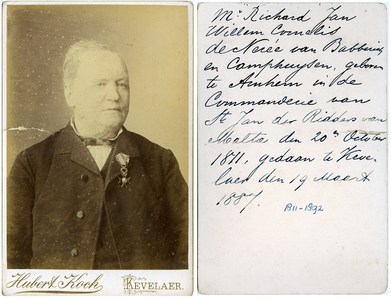 Hubert Koch
KEVELAER.
Mr. Richard Jan
Willem Cornelis
de Nerée van Babberich
en Camphuysen, geboren
te Arnhem in de
Commanderie van
St Jan der Ridders van
Malta den 20n October
1811, gedaan te Keve-
laer den 19 Maart
1887.
1811-1892